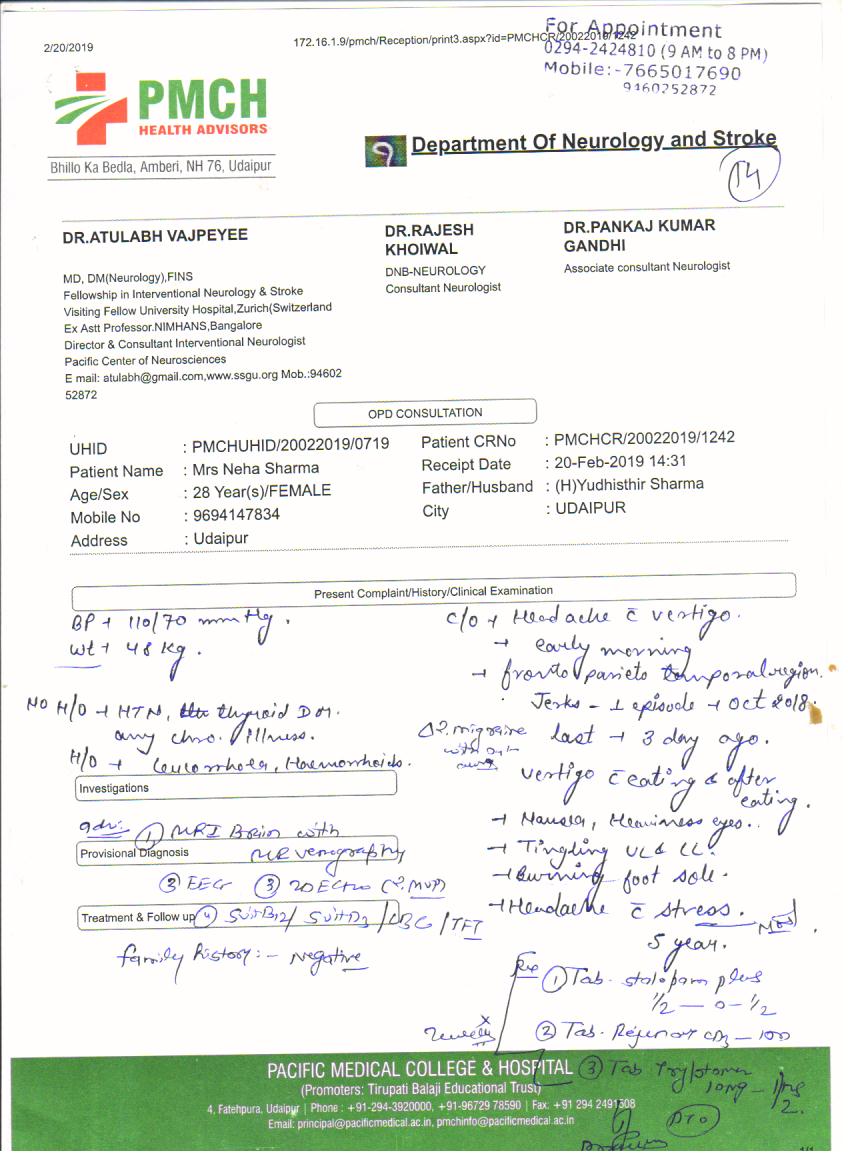 For Appointment
2/20/2019
172.16.1.9/pmch/Reception/print3.aspx?id=PMCHCR/20022019/1242
0294-2424810 (9 AM to 8 PM)
Mobile:-7665017690
9460252872
PMCH
HEALTH ADVISORS
Bhillo Ka Bedla, Amberi, NH 76, Udaipur
Department Of Neurology and Stroke
14
DR.ATULABH VAJPEYEE
MD, DM(Neurology),FINS
Fellowship in Interventional Neurology & Stroke
Visiting Fellow University Hospital,Zurich(Switzerland
Ex Astt Professor.NIMHANS,Bangalore
Director & Consultant Interventional Neurologist
Pacific Center of Neurosciences
E mail: atulabh@gmail.com,www.ssgu.org Mob.:94602
52872
DR.RAJESH
KHOIWAL
DNB-NEUROLOGY
Consultant Neurologist
DR.PANKAJ KUMAR
GANDHI
Associate consultant Neurologist
OPD CONSULTATION
UHID : PMCHUHID/20022019/0719 Patient CRNo : PMCHCR/20022019/1242
Patient Name : Mrs Neha Sharma Receipt Date : 20-Feb-2019 14:31
Age/Sex : 28 Year(s)/FEMALE Father/Husband : (H)Yudhisthir Sharma
Mobile No : 9694147834 City : UDAIPUR
Address : Udaipur
Present Complaint/History/Clinical Examination
BP → 110/70 mmHg.
Wt → 48 Kg.
NO H/O → HTN, thyroid DM.
any chro. illness.
H/O → Leucorrhoea, Haemorrhoids.
Investigations
Adv: ① MRI Brain with
Provisional Diagnosis MR venography
② EEG ③ 2D Echo (?MVP)
Treatment & Follow up ④ S.Vit B12/ S.Vit D3 /CBC /TFT
family history:- Negative
c/o → Headache c̄ vertigo.
→ early morning
→ fronto parieto temporal region.
Jerks - 1 episode → Oct 2018.
Δ ?migraine
last → 3 day ago.
vertigo c̄ eating & after
eating.
→ Nausea, Heaviness eyes.
→ Tingling UL & LL.
→ Burning foot sole.
→ Headache c̄ stress.
5 year.
Rx ① Tab. stalopam plus
1/2 — 0 — 1/2
② Tab. CD3 — 1 OD
③ Tab Tryptomer
10mg — 1 HS
2
PTO
PACIFIC MEDICAL COLLEGE & HOSPITAL
(Promoters: Tirupati Balaji Educational Trust)
4, Fatehpura, Udaipur | Phone : +91-294-3920000, +91-96729 78590 | Fax: +91 294 2491508
Email: principal@pacificmedical.ac.in, pmchinfo@pacificmedical.ac.in
1/1